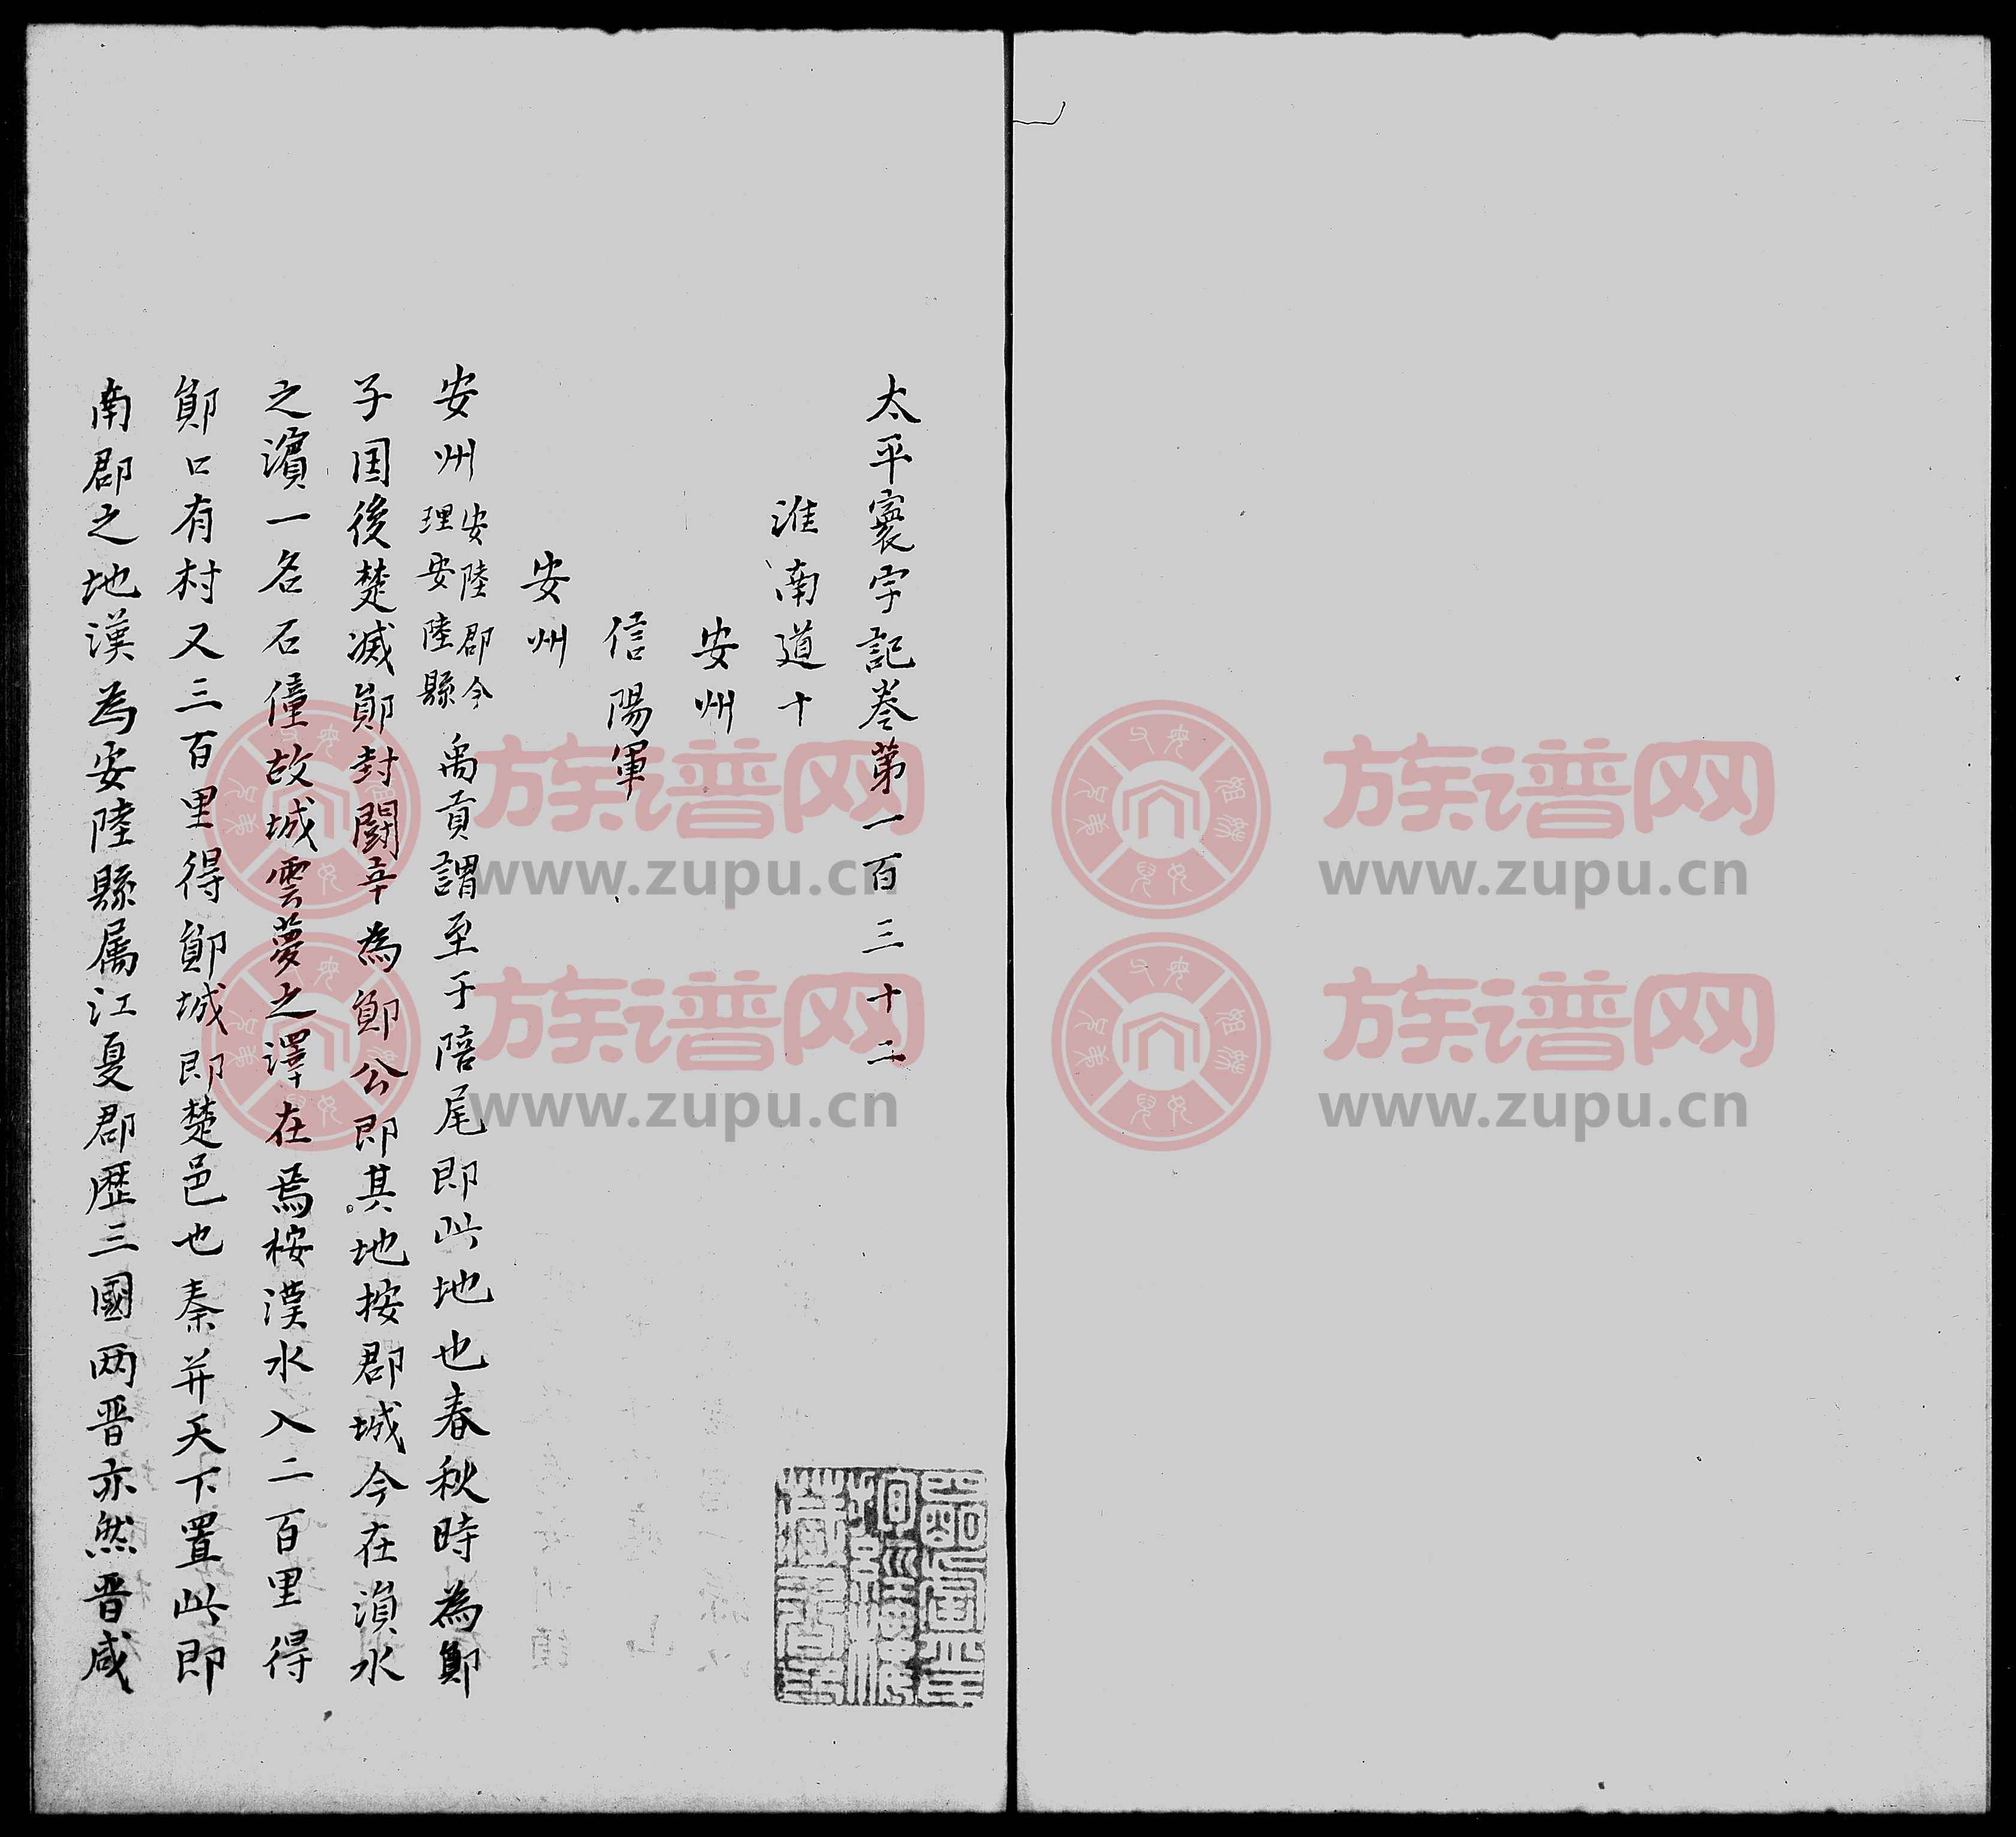 太平寰宇記卷第一百三十二
淮南道十
安州
信陽軍
安州
安州安陸郡今理安陸縣禹貢謂至于陪尾即此地也春秋時為鄖
子国後楚滅鄖封鬬辛為鄖公即其地按郡城今在溳水
之濱一名石僮故城雲夢之澤在焉桉漢水入二百里得
鄖口有村又三百里得鄖城即楚邑也秦并天下置此即
南郡之地漢為安陸縣属江夏郡歷三國两晋亦然晋咸
族谱网
www.zupu.cn
族谱网
www.zupu.cn
族谱网
www.zupu.cn
族谱网
www.zupu.cn